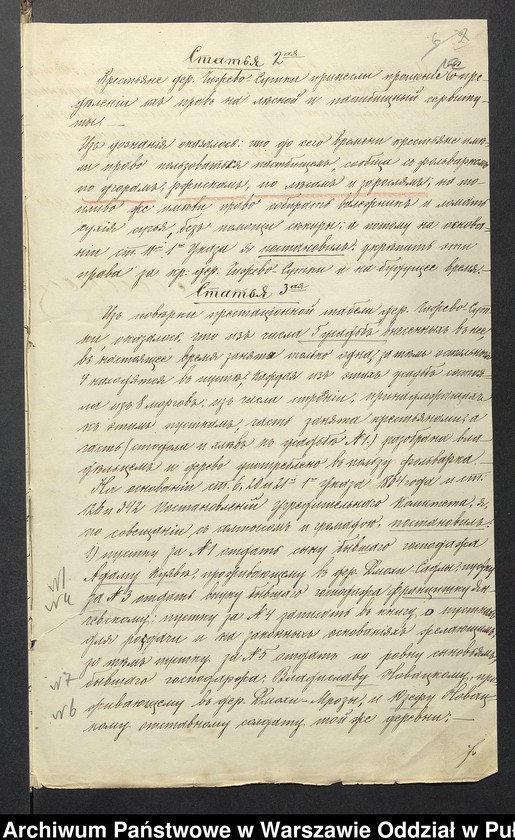 Статья 2ая
Крестьяне дер. Гжрево-Сутки принесли прошение о опре-
дѣленіи ихъ правъ на лѣсной и пастбищный сервиту-
ты.—
Изъ дознанія оказалось: что до сего времени крестьяне имѣ-
ли право пользоваться пастбищемъ, сообща съ фольваркомъ
по угорамъ, ржискомъ, по лѣсамъ и зарослямъ; на то-
пливо же имѣли право собирать валежникъ и ломать
сухія сучья, безъ помощи секиры; а потому на основа-
ніи ст. 11й 1го Указа я постановилъ: укрѣпить эти
права за кр: дер. Гжрево-Сутки и на будущее время.—
Статья 3ая
Изъ повѣрки престаціонной табели дер. Гжрево-Сут-
ки оказалось, что изъ числа 5 усадьбъ внесенныхъ въ нее,
въ настоящее время занята только одна, за тѣмъ остальныя
4 находятся въ пусткѣ. Каждая изъ этихъ усадьбъ состоя-
ла изъ 8 морговъ; изъ числа строеній, принадлежащихъ
къ этимъ пусткамъ, часть занята крестьянами; а
часть (стодола и хлѣвъ къ усадьбѣ №1.) разобрана вла-
дѣльцемъ и дерево употреблено въ пользу фольварка.—
На основаніи ст. 6, 20 и 21й 1го Указа 1864 года и ст.
126 и 342 Постановленій Учредительнаго Комитета, я,
по совѣщаніи съ и громадою, постановилъ:
1) пустку за №1 отдать сыну бывшаго господаря
Адаму Куявѣ, проживающему въ дер. Дмохи-Садлы; пустку
за №3 отдать внуку бывшаго господаря Францишку
; пустку за №4 записать въ книгу о пусткахъ
для раздачи и на законныхъ основаніяхъ желающимъ,
за тѣмъ пустку за №5 отдать по ровну сыновьямъ
бывшаго господаря, Владиславу Новацкому, про-
живающему въ дер. Дмохи-Мрозы, и Юзефу Новац-
кому отставному солдату той же деревни.—
№1
№4
№7
№6
Archiwum Państwowe w Warszawie Oddział w Puł